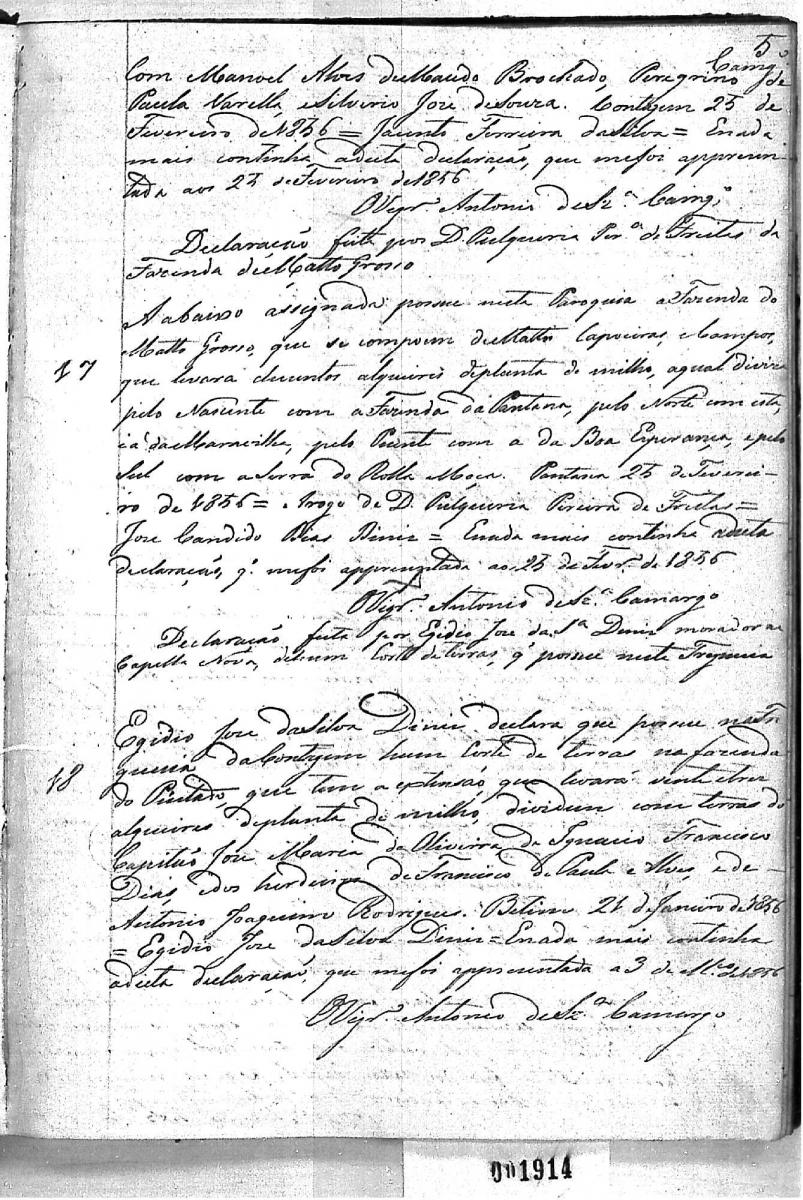 5º
Camgº
com Manoel Alves de Macedo Brochado, Peregrino de
Paula Varella, e Silverio Jose de Souza. Contagem 25 de
Fevereiro de 1856 = Jacinto Ferreira da Silva = E nada
mais continha a dicta declaração, que me foi appresen-
tada aos 25 de Fevereiro de 1856
O Vigrº Antonio de Szª Camgº
Declaração feita por D. Pulqueria Perª de Freitas da
Fazenda de Matto Grosso
17
A abaixo assignada possue nesta Paroquia a Fazenda do
Matto Grosso, que se compoem de Mattos Capoeiras, e Campos,
que levara duzentos alqueires de planta de milho, a qual diviza
pelo Nascente com a Fazenda da Pantana, pelo Norte com
a da Maravilha, pelo Puente com a da Boa Esperança, e pelo
Sul com a Serra do Rolla Moça. Pantana 25 de Feverei-
ro de 1856 = A rogo de D. Pulqueria Pereira de Freitas =
Jose Candido Dias Diniz = E nada mais continha a dicta
declaração, qº me foi appresentada ao 25 de Fevrº de 1856
O Vigrº Antonio de Szª Camargo
Declaração feita por Egidio Jose da Sª Diniz morador na
Capella Nova, de hum Corte de terras, qº possue nesta Freguesia
18
Egidio Jose da Silva Diniz declara que possue na Fre
guesia da Contagem hum Corte de terras na fazenda
do Pintado, que tem a extensão que levará vinte e tres
alqueires de planta de milho, dividem com terras do
Capitão Jose Maria de Oliveira da Ignacio Francisco
Dias, e dos herdeiros de Francisco de Paula e Alves, e de
Antonio Joaquim Rodrigues. Betim 21 de Janeiro de 1856
= Egidio Jose da Silva Diniz = E nada mais continha
a dicta declaração, que me foi appresentada a 3 de Mço de 1856
O Vigrº Antonio de Szª Camargo
001914